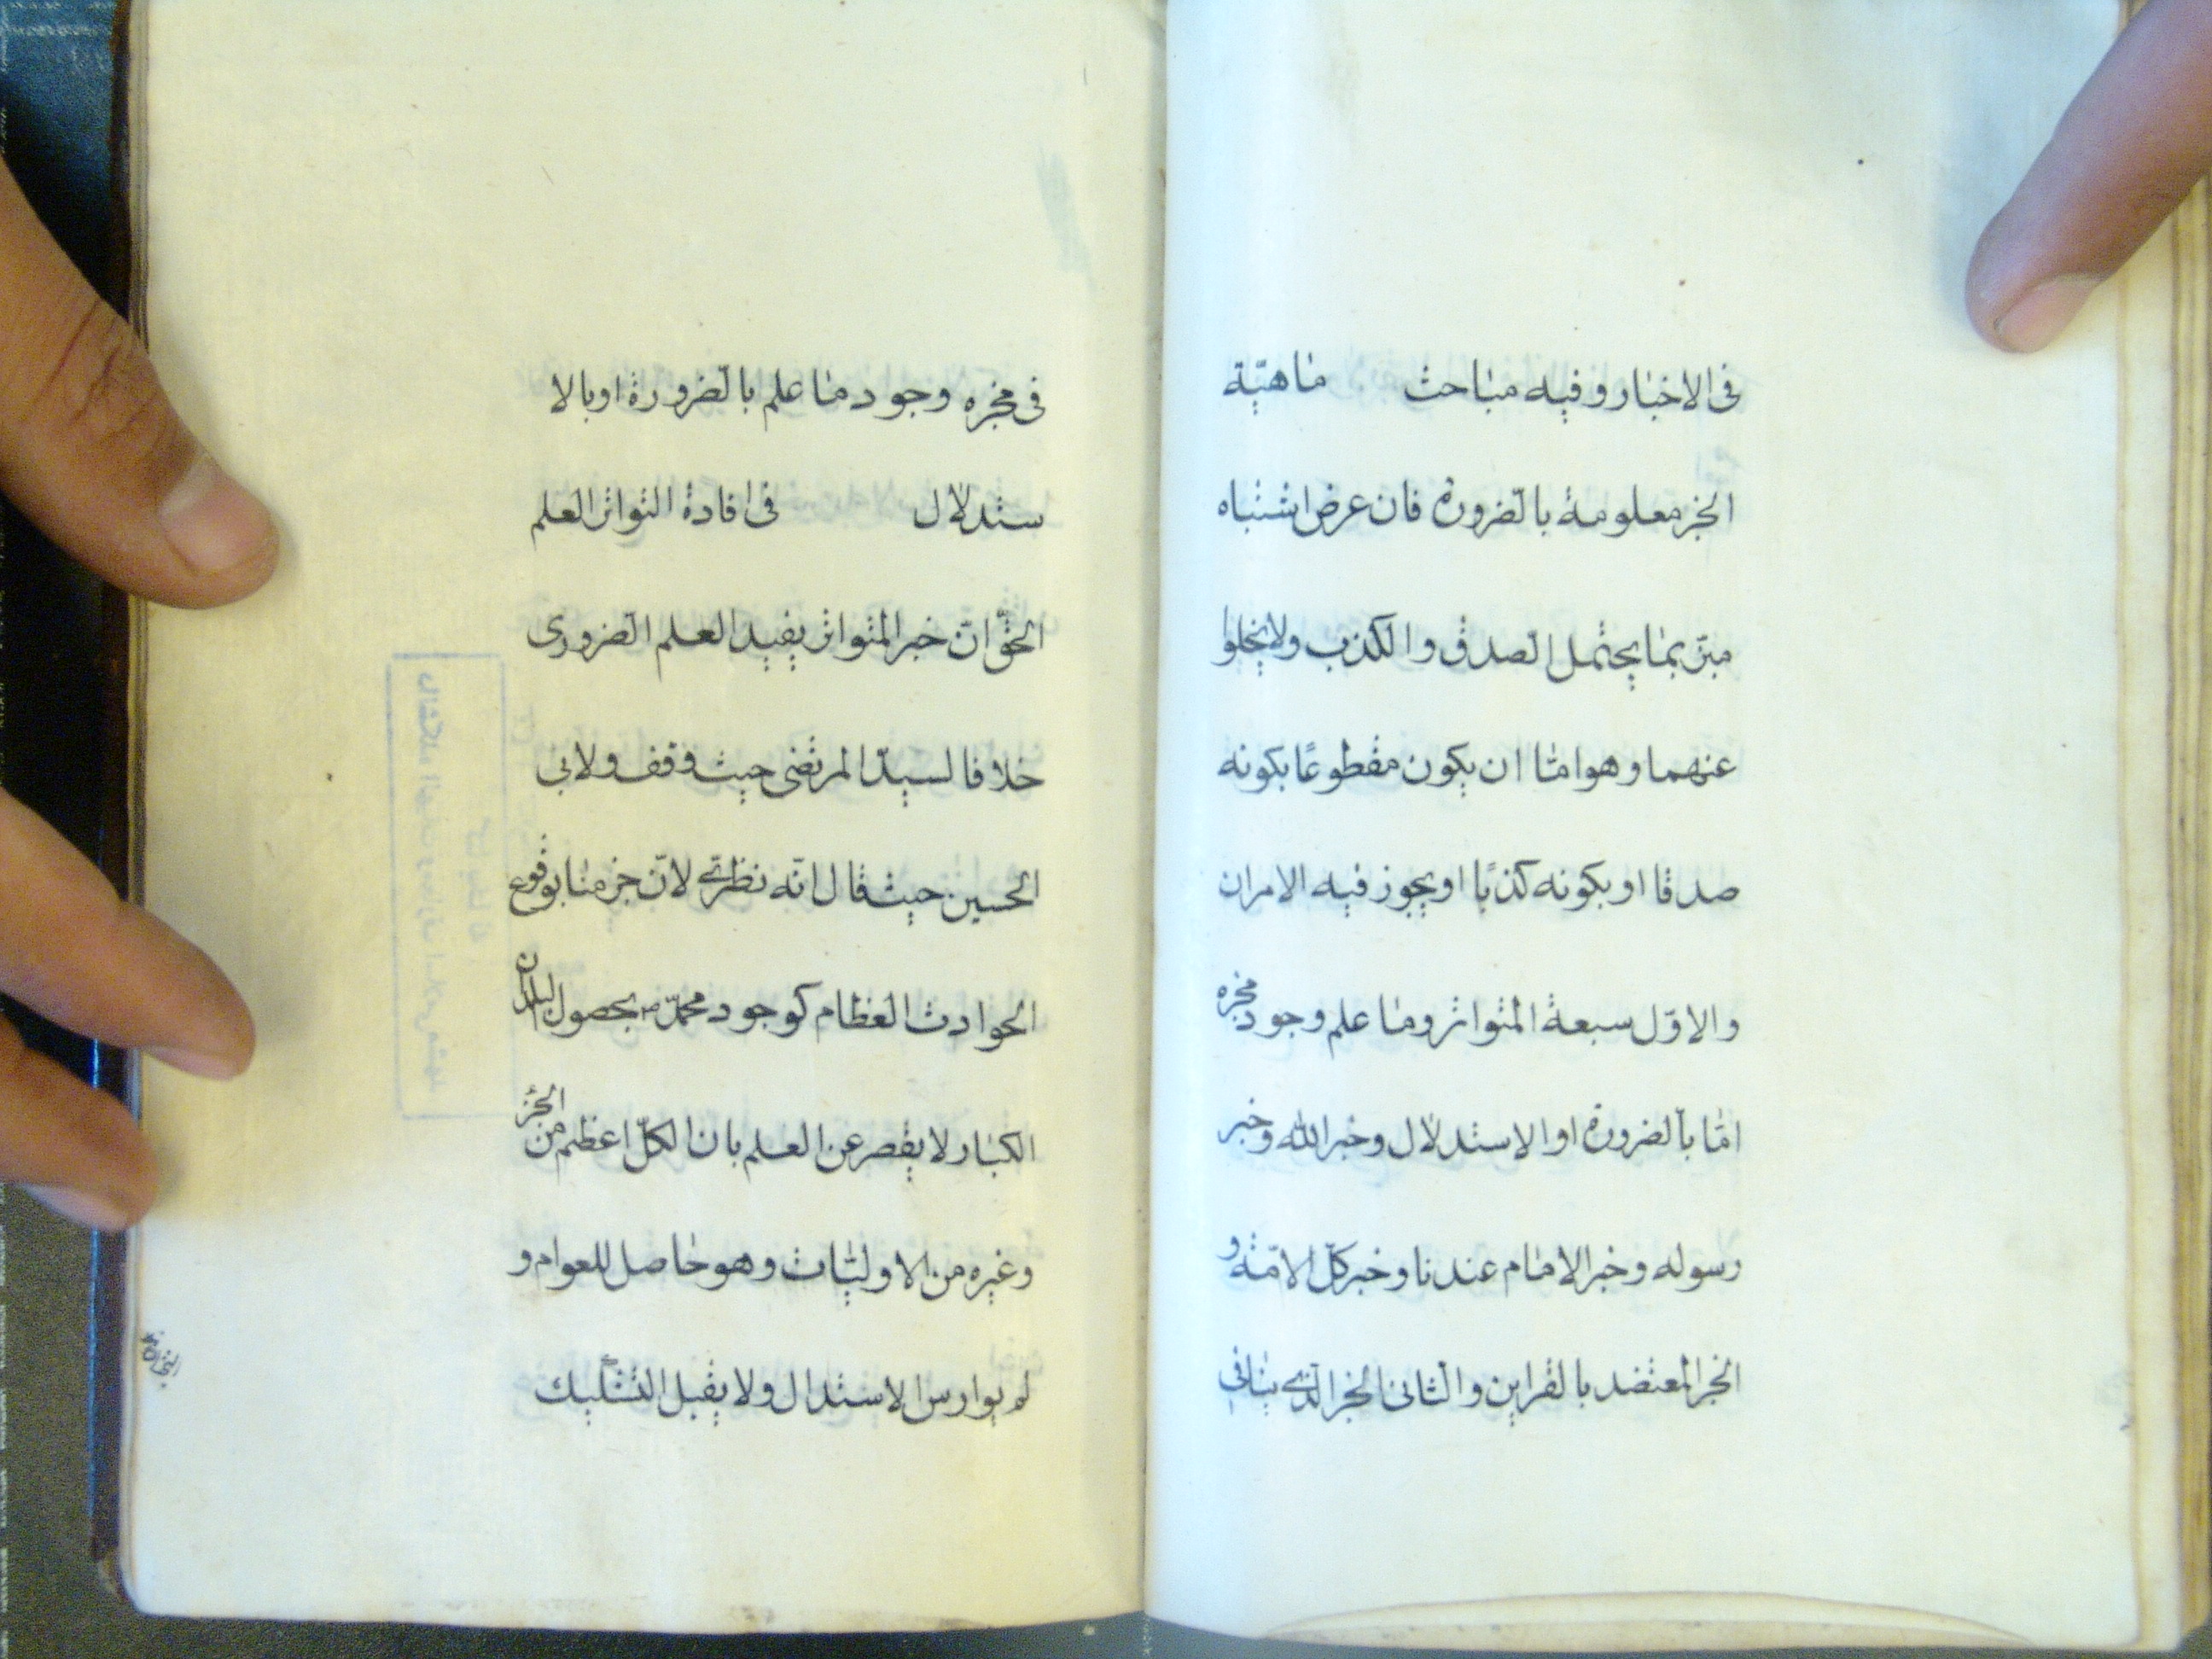 فى الاخبار وفيه مباحث ماهيّة
الخبر معلومة بالضرورة فان عرض اشتباه
ميّز بما يحتمل الصدق والكذب ولا يخلوا
عنهما وهو امّا ان يكون مقطوعًا بكونه
صدقا او بكونه كذبًا او يجوز فيه الامران
والاوّل سبعة المتواتر وما علم وجود مخبره
امّا بالضرورة او الاستدلال وخبر الله وخبر
رسوله وخبر الامام عندنا وخبر كلّ الامّة و
الخبر المعتضد بالقراين والثانى الخبر الّذى ينافى
فى مخبره وجود ما علم بالضرورة او بالا
ستدلال فى افادة التواتر العلم
الحقّ انّ خبر المتواتر يفيد العلم الضرورى
خلافا لسيّد المرتضى حيث وقف ولابى
الحسين حيث قال انّه نظرىّ لانّ جزمنا بوقوع
الحوادث العظام كوجود محمّد ص بحصول البلدان
الكبار لا يقصر عن العلم بان الكلّ اعظم من الجزء
وغيره من الاوليّات وهو حاصل للعوام و
لم يوارس الاستدال ولا يقبل التشكيك